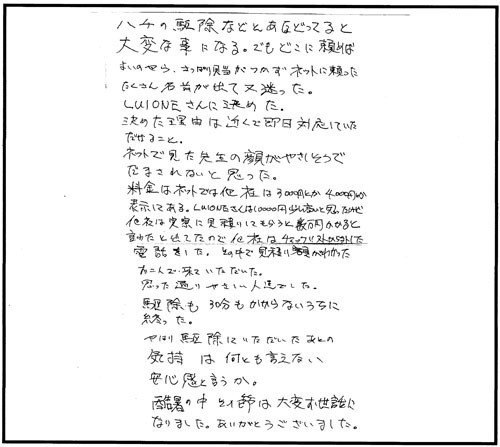 ハチの駆除などとんあなどってると
大変な事になる。でもどこに頼めば
よいのやら、さっぱり見当がつかずネットに頼った
たくさん名前が出て又迷った。
LUIONEさんに決めた。
決めた理由は近くで即日対応していた
だけること。
ネットで見た先生の顔がやさしそうで
だまされないと思った。
料金はネットでは他社は3000円とか4000円が
表示してある。LUIONEさんは10000円
他社は実際に見積りしてもらうと数万円かかると
出てたので他社は
電話をした。その中で見積り
お二人で来ていただいた。
思った通りやさしい人達でした。
駆除も30分もかからないうちに
終った。
やはり駆除していただいたあとの
気持は何とも言えない
安心感と言うか。
酷暑の中その節は大変お世話に
なりました。ありがとうございました。